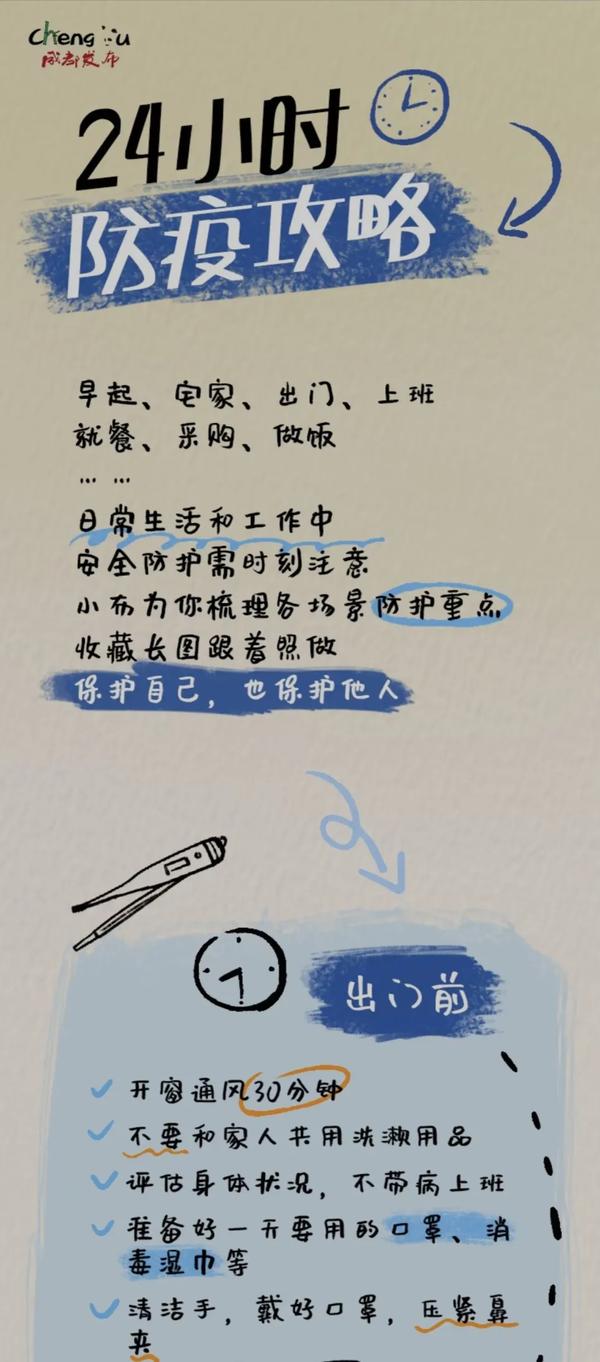 ChengDu
成都发布
24小时
防疫攻略
早起、宅家、出门、上班
就餐、采购、做饭
… …
日常生活和工作中
安全防护需时刻注意
小布为你梳理各场景防护重点
收藏长图跟着照做
保护自己，也保护他人
出门前
开窗通风30分钟
不要和家人共用洗漱用品
评估身体状况，不带病上班
准备好一天要用的口罩、消
毒湿巾等
清洁手，戴好口罩，压紧鼻
夹